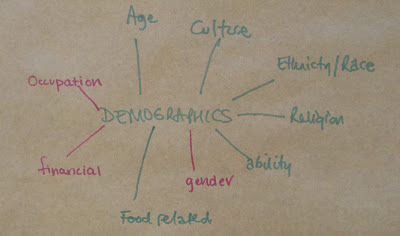 Age
Culture
Ethnicty/Race
Occupation
DEMOGRAPHICS
Religion
financial
gender
ability
Food related